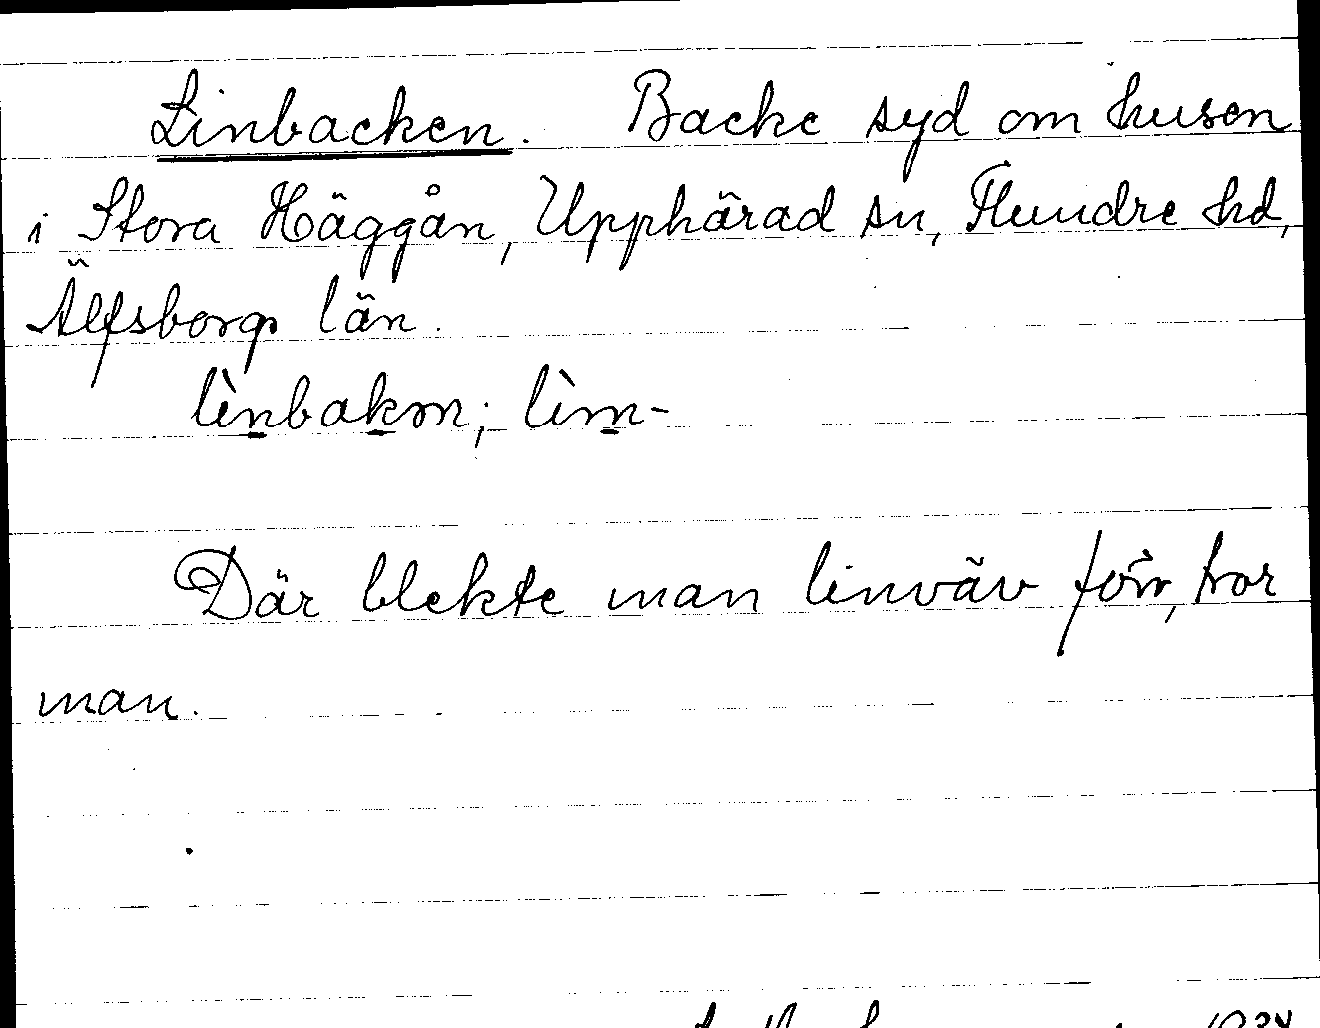 Linbacken. Backe syd om husen
i Stora Häggån, Upphärad sn, Flundre hd,
Älfsborgs län.
lìnbakən; lìm-
Där blekte man linväv förr, tror
man.
1934